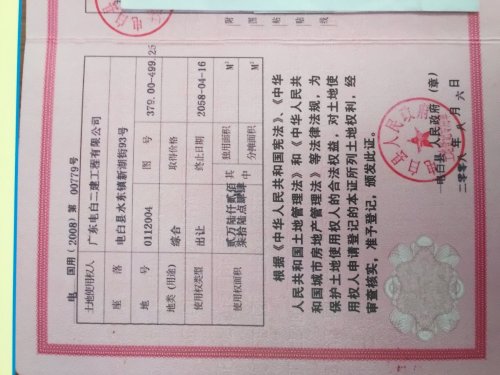 附图粘贴线
电 国用（2008）第 00779号
土地使用权人 广东电白二建工程有限公司
座 落 电白县水东镇新湖街93号
地 号 0112004 图 号 379.00-499.25
地类（用途） 综合 取得价格
使用权类型 出让 终止日期 2058-04-16
使用权面积 其中 独用面积 M²
分摊面积 M²
根据《中华人民共和国宪法》、《中华
人民共和国土地管理法》和《中华人民共
和国城市房地产管理法》等法律法规，为
保护土地使用权人的合法权益，对土地使
用权人申请登记的本证所列土地权利，经
审查核实，准予登记，颁发此证。
电白县 人民政府（章）
二零零八年 八月 六日
电白县人民政府